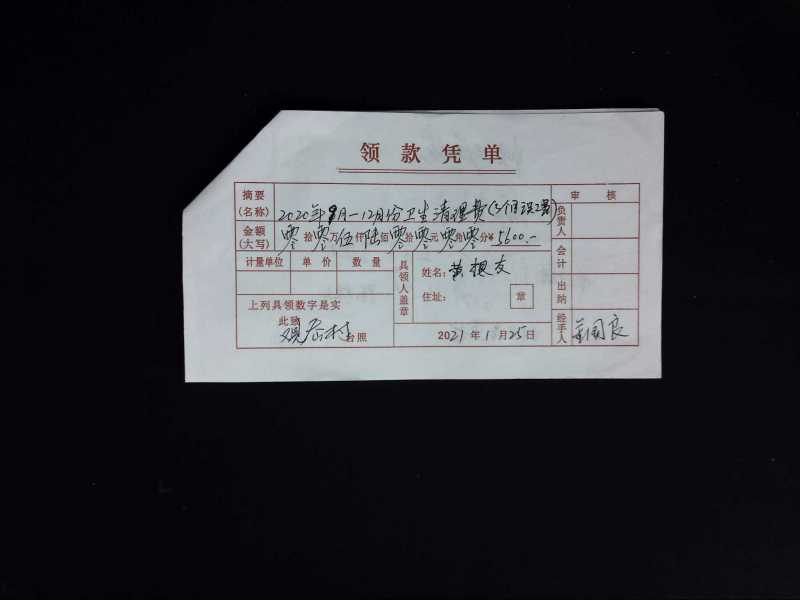 领款凭单
摘要(名称) 2020年9月-12月份卫生清理费
审核
金额(大写) 零拾零万伍仟陆佰零拾零元零角零分¥5600.-
负责人
计量单位 单价 数量
具领人盖章
姓名:黄想友
会计
住址: 章
出纳
上列具领数字是实
此致
观岳村台照
2021年1月25日
经手人 国良